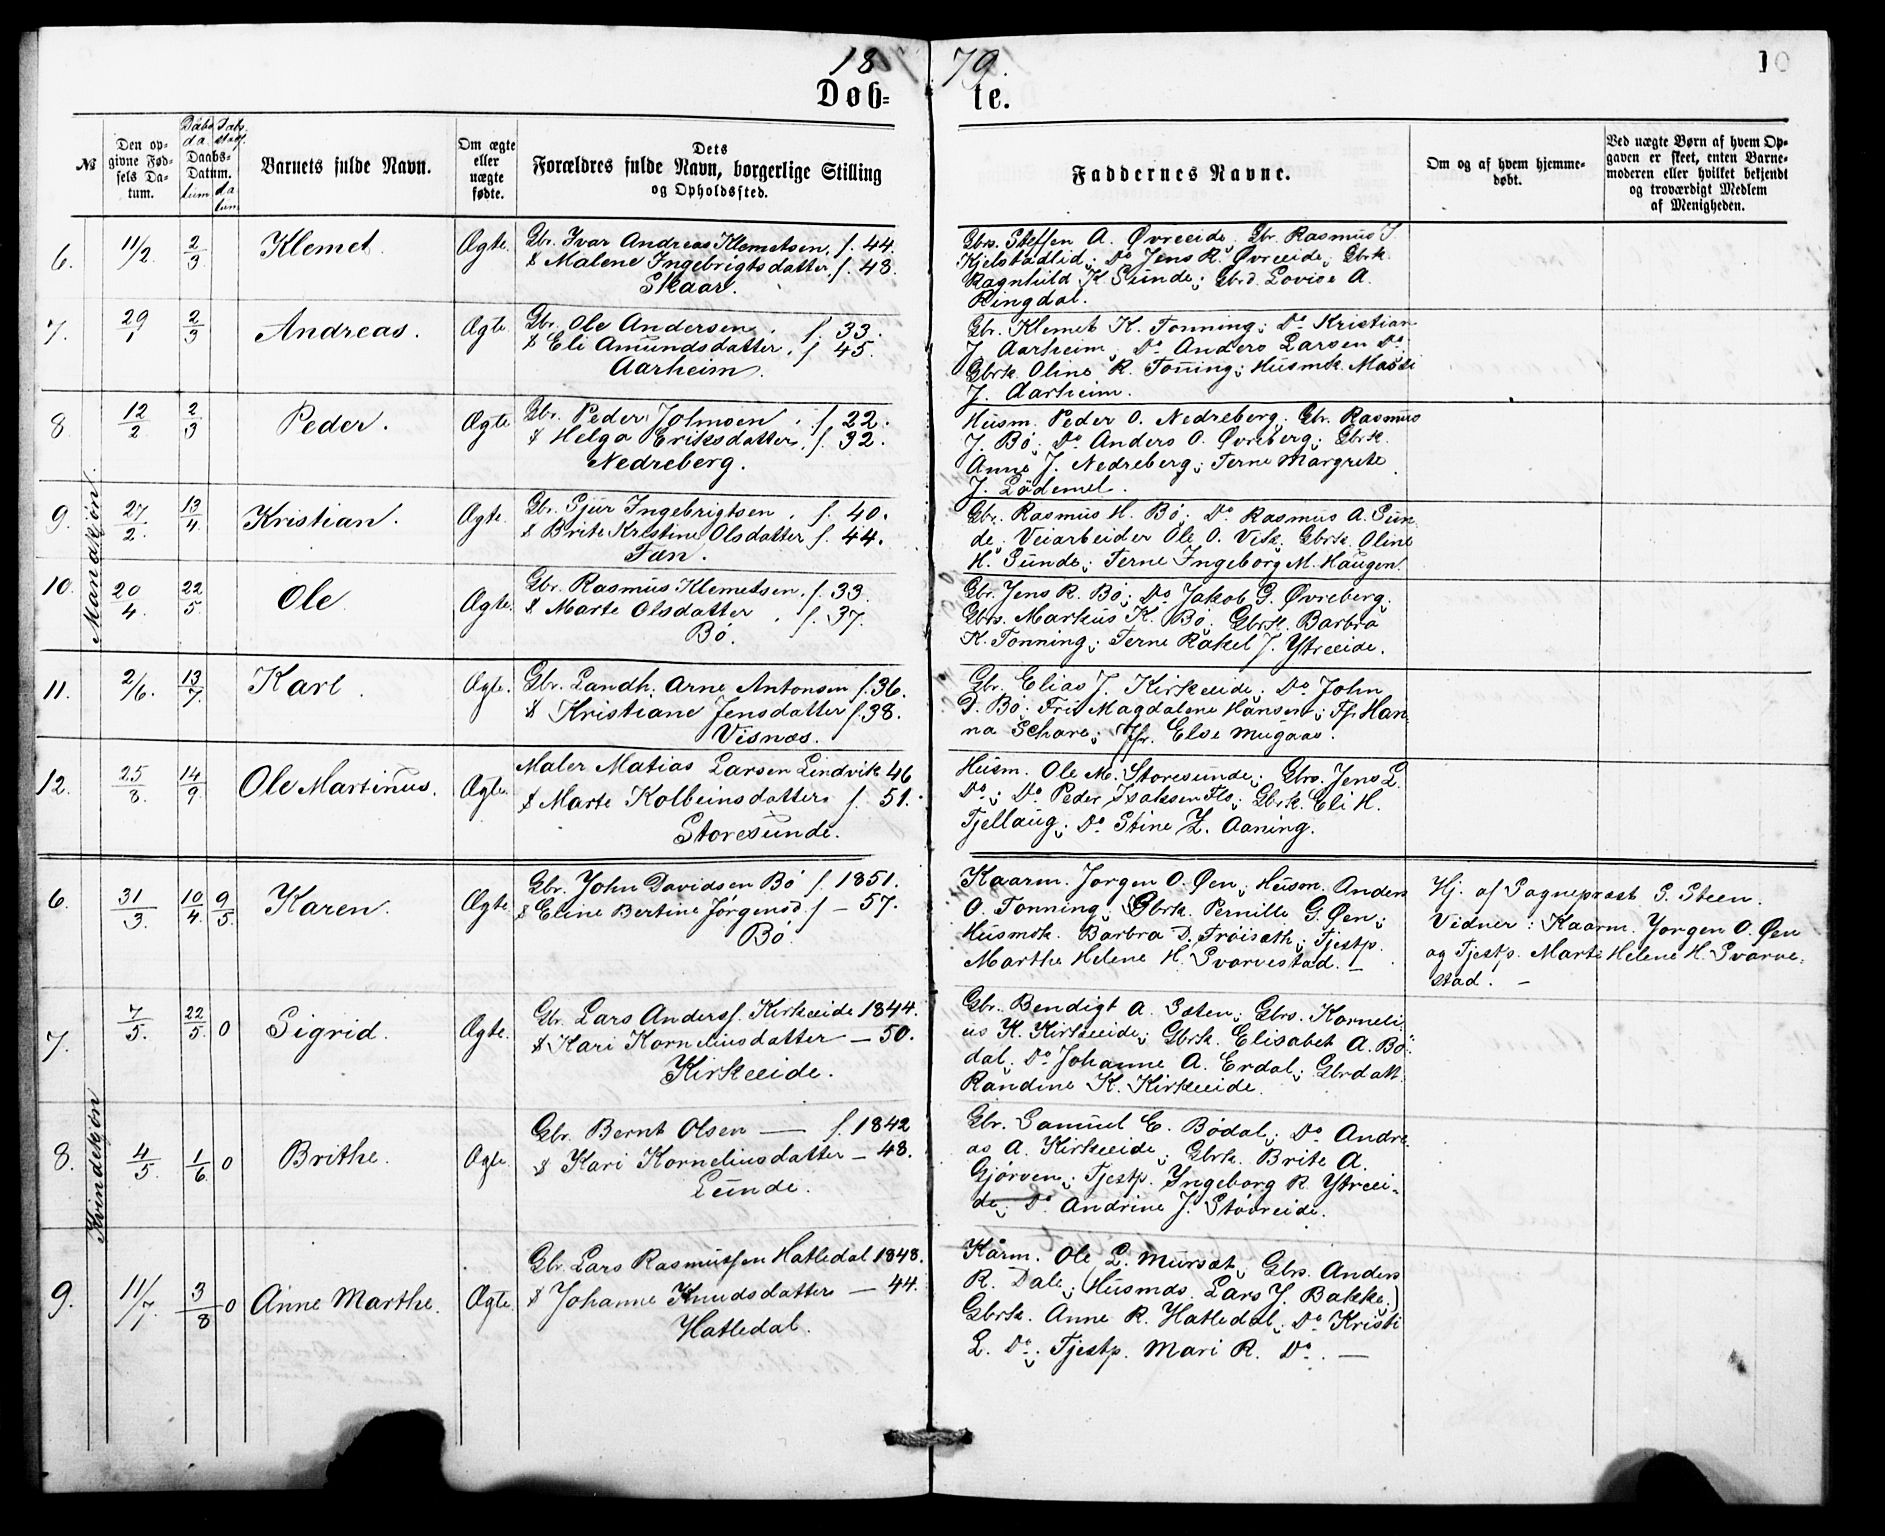 1879.
10
Døb= te.
№
Den opgivne Fødsels Datum.
Daabs-Datum.
Barnets fulde Navn.
Om ægte eller uægte fødte.
Dets Forældres fulde Navn, borgerlige Stilling og Opholdssted.
Faddernes Navne.
Om og af hvem hjemmedøbt.
Ved uægte Børn af hvem Opgaven er skeet, enten Barnemoderen eller hvilket bekjendt og troværdigt Medlem af Menigheden.
Mandkjøn
6. 11/2. 2/3 Klemet. Ægte.
Gbr. Ivar Andreas Klemetsen. f. 44.
& Malene Ingebrigtsdatter, f. 48.
Skaar.
Gbrs. Steffen A. Øvreeide; Gbr. Rasmus J.
Kjelstadlid; Do Jens R. Øvreeide; Gbrk.
Ragnhild K. Sunde; Gbrd. Lovise A.
Ringdal.
7. 29/1 2/3 Andreas. Ægte.
Gbr. Ole Andersen. f. 33.
& Eli Amundsdatter. f. 45.
Aarheim.
Gbr. Klemet K. Tonning; Do Kristian
J. Aarheim; Do Anders Larsen Do
Gbrk. Oline R. Tonning; Husmk. Massi
J. Aarheim.
8 12/2 2/3 Peder. Ægte
Gbr. Peder Johnsen. f. 22.
& Helga Eriksdatter, f. 32.
Nedreberg.
Husm. Peder O. Nedreberg. Gbr. Rasmus
J. Bø; Do Anders O. Øvreberg; Gbrk.
Anne J. Nedreberg; Terne Margrete
J. Lødemel.
9. 27/2. 13/4 Kristian. Ægte.
Gbr. Sjur Ingebrigtsen. f. 40.
& Brite Kristine Olsdatter f. 44.
Tæn.
Gbr. Rasmus H. Bø; Do Rasmus A. Sun-
de. Veiarbeider Ole O. Vik. Gbrk. Oline
H. Sunde; Terne Ingeborg M. Haugen.
10. 20/4. 22/5 Ole Ægte.
Gbr. Rasmus Klemetsen. f. 33.
& Marte Olsdatter. f. 37.
Bø.
Gbr. Jens R. Bø; Do Jakob G. Øvreberg;
Gbrs. Markus K. Bø; Gbrk. Barbra
K. Tonning; Terne Rakel J. Ytreeide.
11. 2/6. 13/7. Karl. Ægte.
Gbr. Landh. Arne Antonsen f. 36.
& Kristiane Jensdatter f. 38.
Visnæs.
Gbr. Elias J. Kirkeeide; Do John
D. Bø; Frü Magdalene Hansen; Fr. Han-
na Schare; Jfr. Else Mugaas.
12. 25/8. 14/9. Ole Martinus. Ægte.
Maler Matias Larsen Lindvik 46
& Marte Kolbeinsdatter f. 51.
Storesunde.
Husm. Ole M. Storesunde; Gbrs. Jens L.
Do; Do Peder Isaksen Flo; Gbrk. Eli H.
Tjellaug; Do Stine L. Aaning.
Kvindekøn
6. 31/3. 10/4. 9/5. Karen. Ægte.
Gbr. John Davidsen Bø f. 1851.
& Eline Bertine Jørgensd. f — 57.
Bø.
Kaarm. Jørgen O. Øen; Husm. Anders
O. Tonning; Gbrk. Pernille G. Øen;
Husmk. Barbra D. Frøisæth; Tjestp.
Marthe Helene H. Svarvestad. —
Hj. af Sogneprest P. Steen.
Vidner: Kaarm. Jørgen O. Øen
og Tjestp. Marte Helene H. Svarve-
stad. —
7. 7/5. 22/5. 0 Sigrid. Ægte.
Gbr. Lars Anderss. Kirkeeide 1844.
& Kari Korneliusdatter — 50.
Kirkeeide.
Gbr. Bendigt A. Sæten; Gbrs. Korneli-
us K. Kirkeeide; Gbrk. Elisabet A. Bø-
dal; Do Johanne A. Erdal; Gbrdatt.
Randine K. Kirkeeide.
8. 4/5. 1/6. 0 Brithe. Ægte.
Gbr. Bernt Olsen — f. 1842
& Kari Korneliusdatter — 48.
Sunde.
Gbr. Samuel E. Bødal; Do Andre-
as A. Kirkeeide; Gbrk. Brite A.
Gjørven; Tjestp. Ingeborg R. Ytreei-
de; Do Andrine J. Støvreide.
9. 11/7. 3/8 0 Anne Marthe. Ægte.
Gbr. Lars Rasmussen Hatledal 1848.
& Johanne Knudsdatter — 44.
Hatledal.
Kårm. Ole L. Mursæt; Gbrs. Anders
R. Dale; (Husmds. Lars J. Bakke;)
Gbrk. Anne R. Hatledal; Do Kristi
L. Do; Tjestp. Mari R. Do. —